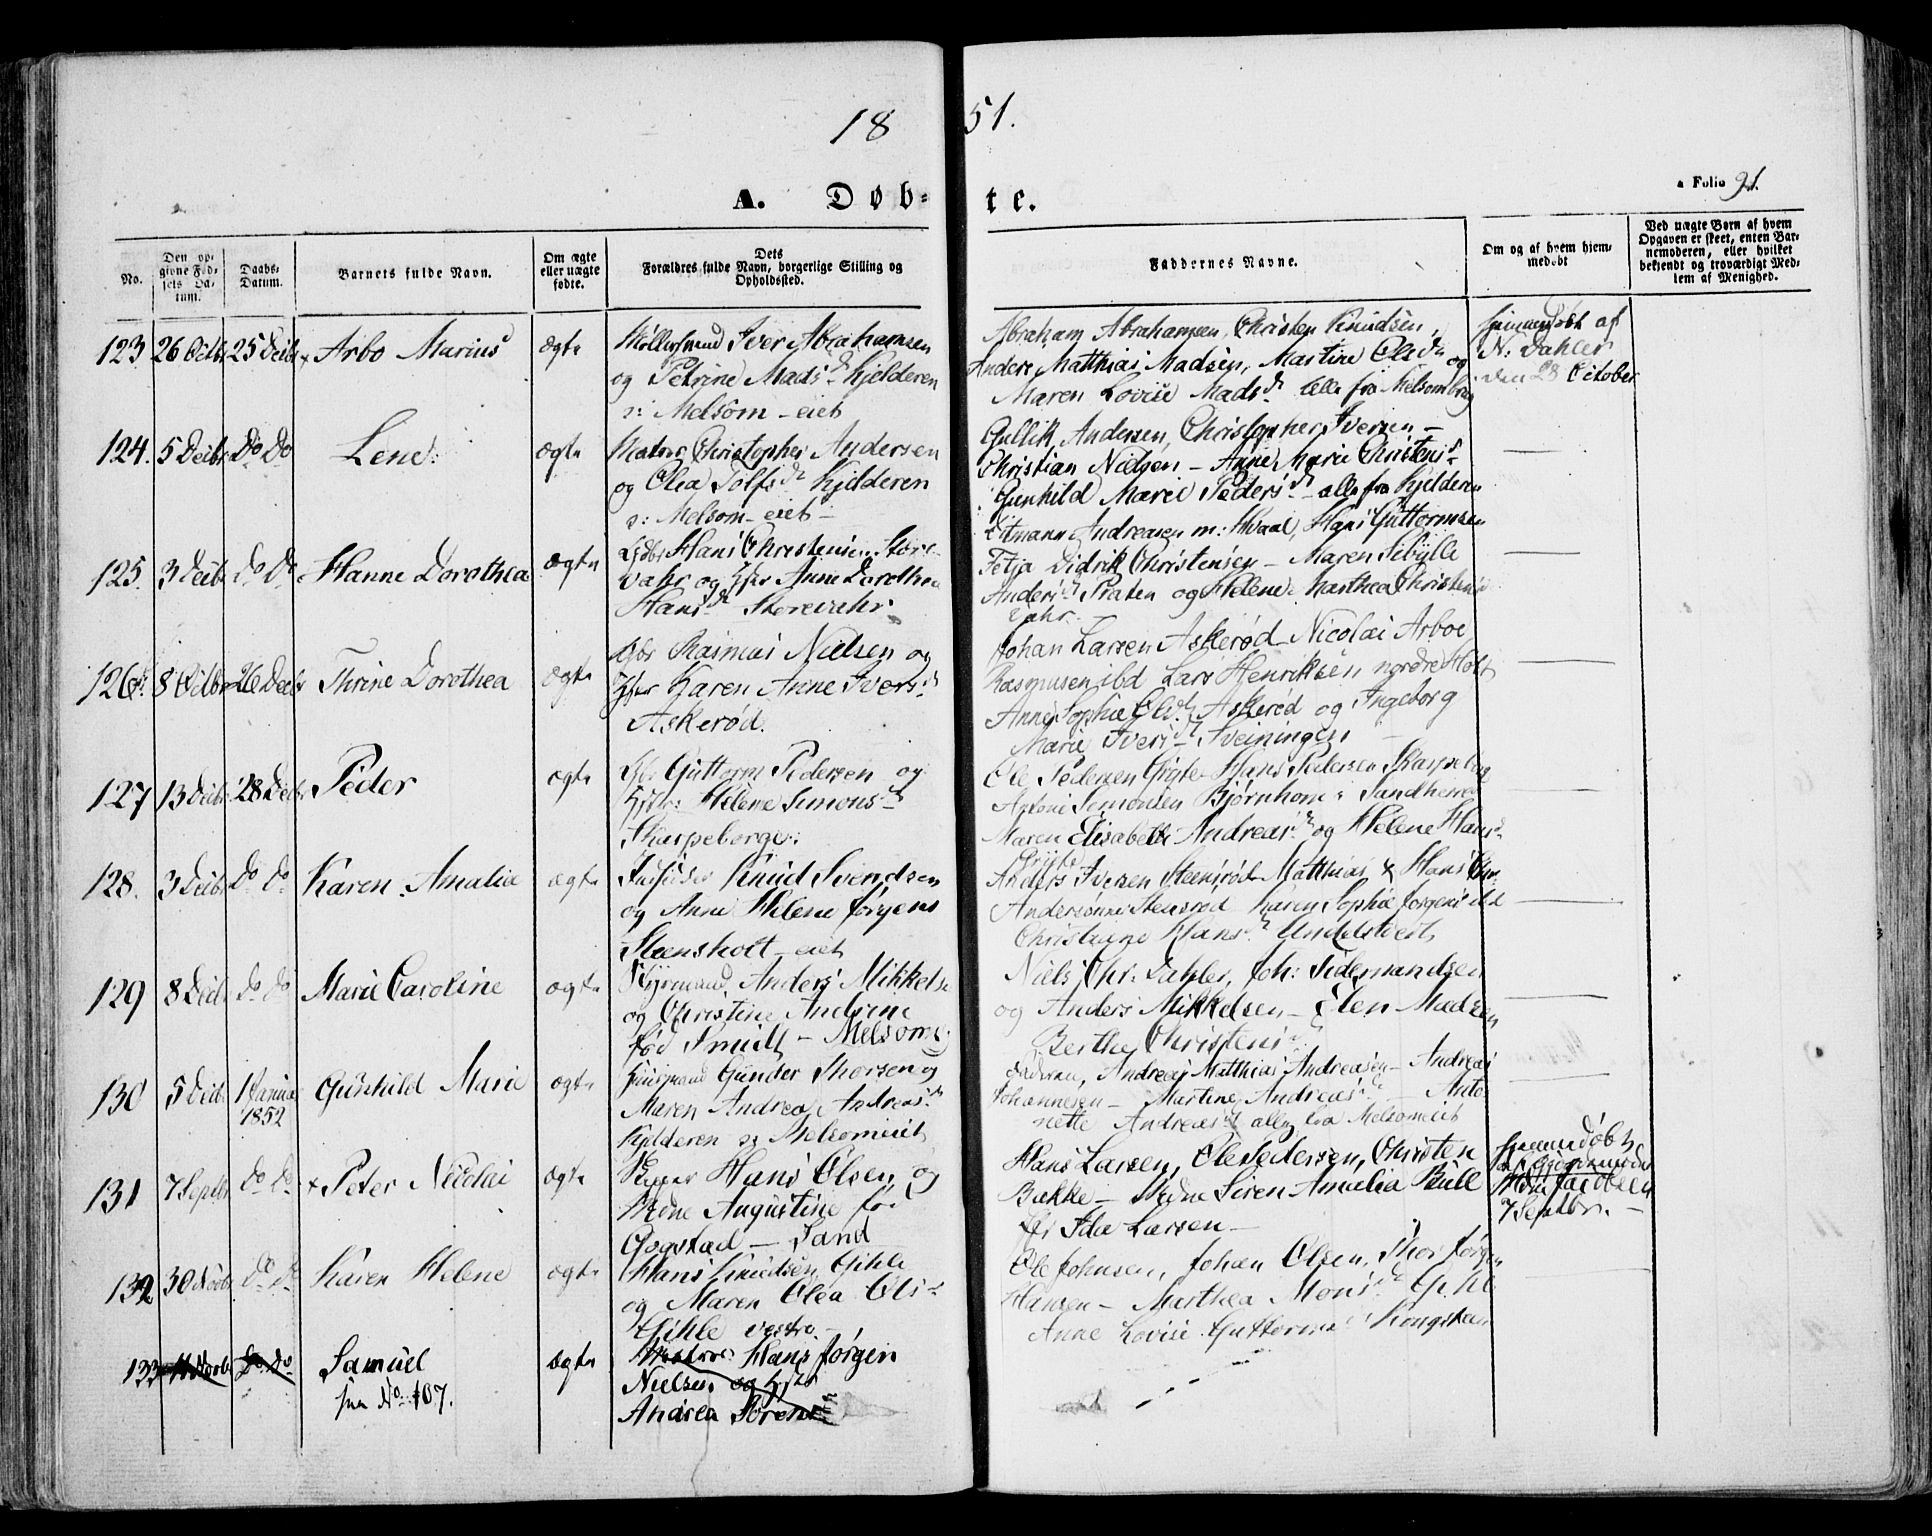 18 51.
A. Døb- te.
a Folio 91.
No.
Den op-
givne Fød-
sels Da-
tum.
Daabs-
Datum.
Barnets fulde Navn.
Om ægte
eller uægte
fødte.
Dets
Forældres fulde Navn, borgerlige Stilling og
Opholdssted.
Faddernes Navne.
Om og af hvem hjem-
medøbt
Ved uægte Børn af hvem
Opgaven er skeet, enten Bar-
nemoderen, eller hvilket
bekjendt og troværdigt Med-
lem af Menighed.
123 26 Octbr 25 Decbr Arbo Marius ægte
Møllersvend Iver Abrahamsen
og Petrine Madsd. Kjelderen
s: Melsom-eiet
Abraham Abrahamsen, Christen Knudsen,
Anders Matthias Madsen, Martine Olsd. og
Maren Lovise Madsd. alle fra Melsom
Hjemmedøbt af
N. Dahler
den 28 October
124. 5 Decbr Do Do Lene ægte
Matros Christopher Andersen
og Olea Tolfsd. Kjelderen
s: Melsom-eiet
Gullik Andersen, Christopher Iversen -
Christian Nielsen - Anne Marie Christensd.
Gunhild Marie Pedersd. - alle fra Kjelderen
125. 3 Decbr Do Do Hanne Dorothea ægte
Hans Christensen Store-
vahr og Anne Dorothea
Hansd. Storevahr
Andreasen m: Hvaal, Hans Guttormsen
Didrik Christensen - Maren Sebylle
Andersd. Præten og Helene Marthea Christensd.
Vahr.
126 8 Octbr 26 Decbr Thrine Dorothea ægte
Gbr Rasmus Nielsen og
Karen Anne Iversd.
Askerød.
Johan Larsen Askerød - Nicolai Arboe
Rasmusen ibd Lars Henriksen nordre Holt
Anne Sophie Olsd. Askerød og Ingeborg
Marie Iversd. Sveiningen
127 13 Decbr 28 Decbr Peder ægte
Gbr Guttorm Pedersen og
Helene Simonsd.
Skarpeborge:
Ole Pedersen Gigte - Hans Pedersen Skarpeborg
Simonsen Bjørnhom i Sandherred
Maren Elisabeth Andreasd. og Helene Hansd.
128. 3 Decbr Do Do Karen Amalie ægte
Knud Svendsen
og Anne Helene Jørgens
Steensholt-eiet
Anders Iversen Steensrød Matthias & Hans Chr.
Andersønner Stensrød Karen Sophie Jorgensd ibd
Christiane Hansd. Undelstvedt
129 8 Decbr Do Do Marie Caroline ægte
Styrmand Anders Mikkelsen
og Christine Andrine
fød Smidt - Melsom
Niels Chr: Dahler, Joh: Tidemandsen
og Anders Mikkelsen - Elen Madsen
Berthe Christensd.
130 5 Decbr 1 Januar
1852
Gunhild Marie ægte
Gunder Thorsen og
Maren Andrea Andreasd.
Kjelderen s: Melsomeiet
Faderen, Andreas Matthias Andreasen - Andreas
Johannesen - Martine Andreasd. - Anto-
nette Andreasd. alle fra Melsomeiet
131 7 Septbr Do Do Peter Nicolai ægte
Hans Olsen og
Augustine fød
Gogstad - Sand
Hans Larsen, Ole Pedersen, Christen
Bække - Madme Siren Amalia Bull
Ida Larsen -
Hjemmedøbt
Jacobsen
7 Septbr.
132 30 Novbr Do Do Karen Helene ægte
Hans Knudsen Gihle
og Maren Olea Olsd.
Gihle vestre -
Ole Johnsen, Johan Olsen, Thor Jørgen
Hansen - Marthea Monsd. Gihle
Anne Lovise Guttormsd. Kongstein
133 11 Novbr Do Do Samuel ægte
see No. 107.
Matros: Hans Jørgen
Nielsen og
Andrea Sørensd.